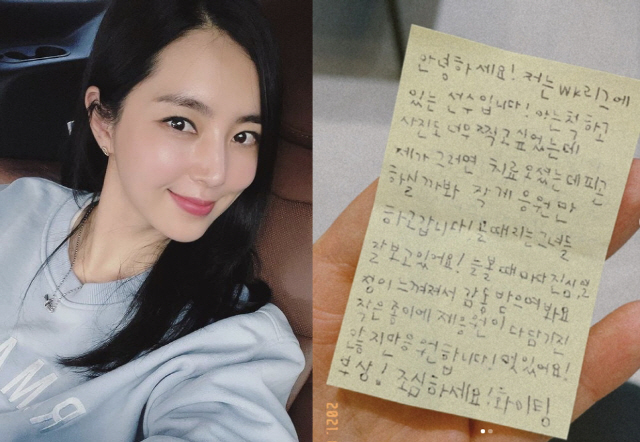 안녕하세요! 저는 WK리그에
있는 선수입니다! 아는척 하고
사진도 너무 찍고 싶었는데
제가 그러면 치료 오셨는데 피곤
하실까봐 작게 응원만
하고 갑니다! 볼때리는그녀들
잘보고있어요! 늘볼때마다 진심,열
정이 느껴져서 감동 받으며 봐요
작은 종이에 제응원이 다 담기진
않지만 응원합니다! 멋있어요!
부상! 조심하세요! 화이팅
2021.
RMA